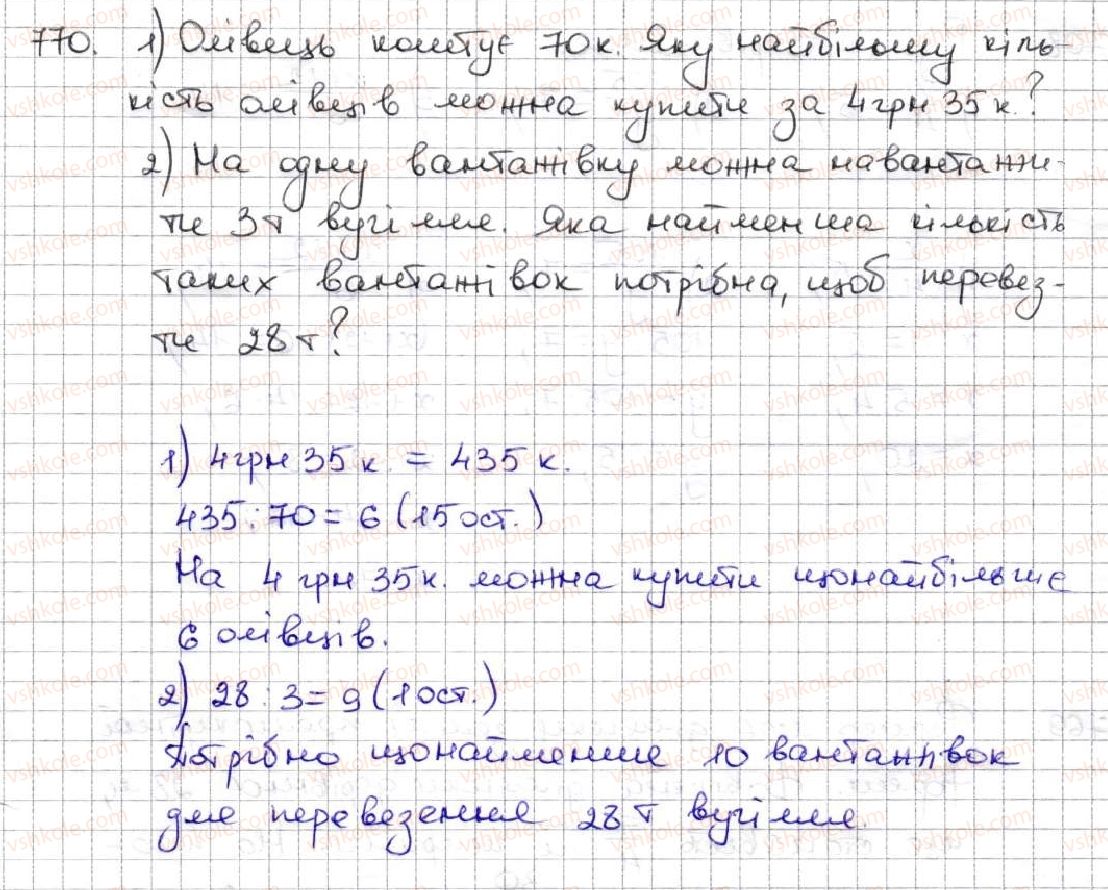 770. 1) Олівець коштує 70 к. Яку найбільшу кіль-
кість олівців можна купити за 4 грн 35 к.?
2) На одну вантажівку можна навантажи-
ти 3 т вугілля. Яка найменша кількість
таких вантажівок потрібна, щоб перевез-
ти 28 т?
1) 4 грн 35 к. = 435 к.
435 : 70 = 6 (15 ост.)
На 4 грн 35 к. можна купити щонайбільше
6 олівців.
2) 28 : 3 = 9 (1 ост.)
Потрібно щонайменше 10 вантажівок
для перевезення 28 т вугілля.
vshkole.com